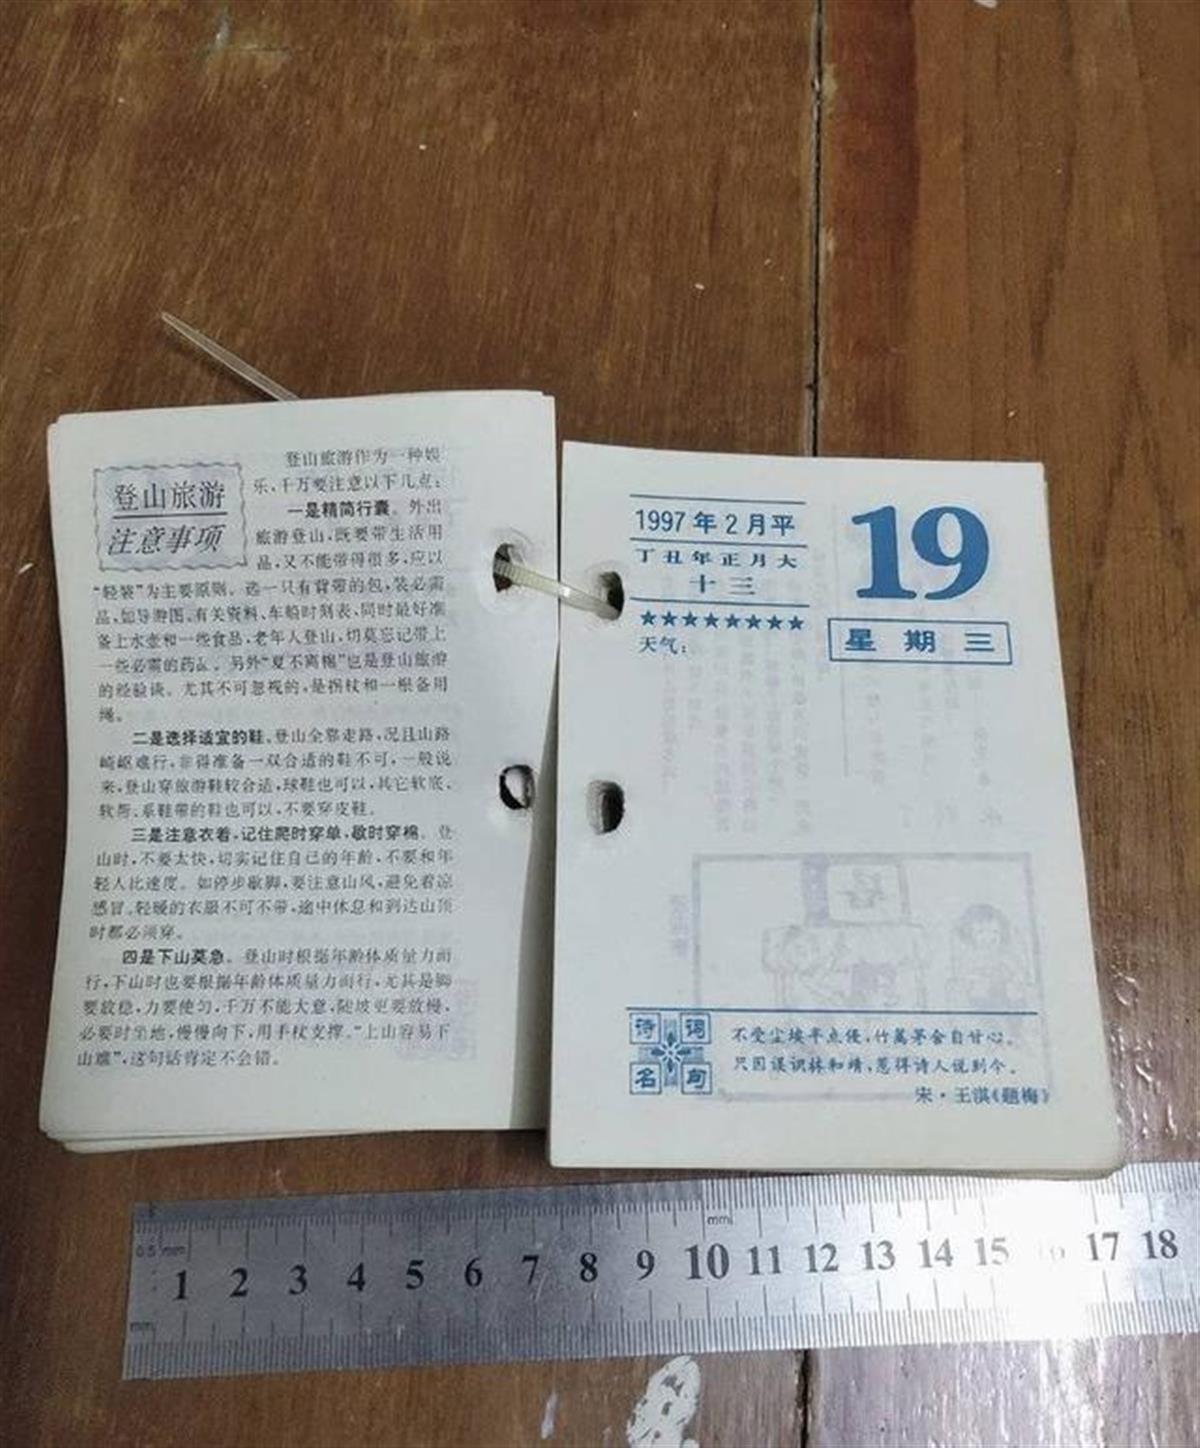 登山旅游
注意事项
登山旅游作为一种娱
乐,千万要注意以下几点:
一是精简行囊。外出
旅游登山,既要带生活用
品,又不能带得很多,应以
“轻装”为主要原则。选一只有背带的包,装必需
品,如导游图、有关资料、车船时刻表,同时最好准
备上水壶和一些食品,老年人登山,切莫忘记带上
一些必需的药品。另外“夏不离棉”也是登山旅游
的经验谈。尤其不可忽视的,是拐杖和一根备用
绳。
二是选择适宜的鞋。登山全靠走路,况且山路
崎岖难行,非得准备一双合适的鞋不可,一般说
来,登山穿旅游鞋较合适,球鞋也可以,其它软底、
软帮、系鞋带的鞋也可以,不要穿皮鞋。
三是注意衣着,记住爬时穿单,歇时穿棉。登
山时,不要太快,切实记住自己的年龄,不要和年
轻人比速度。如停步歇脚,要注意山风,避免着凉
感冒。轻暖的衣服不可不带,途中休息和到达山顶
时都必须穿。
四是下山莫急。登山时根据年龄体质量力而
行,下山时也要根据年龄体质量力而行,尤其是脚
要放稳,力要使匀,千万不能大意,陡坡更要放慢,
必要时坐地,慢慢向下,用手杖支撑。“上山容易下
山难”,这句话肯定不会错。
1997年2月平
丁丑年正月大
十三
★★★★★★★★
天气:
19
星期三
诗词
名句
不受尘埃半点侵,竹篱茅舍自甘心。
只因误识林和靖,惹得诗人说到今。
宋·王淇《题梅》
mm
0.5 mm
1 2 3 4 5 6 7 8 9 10 11 12 13 14 15 16 17 18
mm